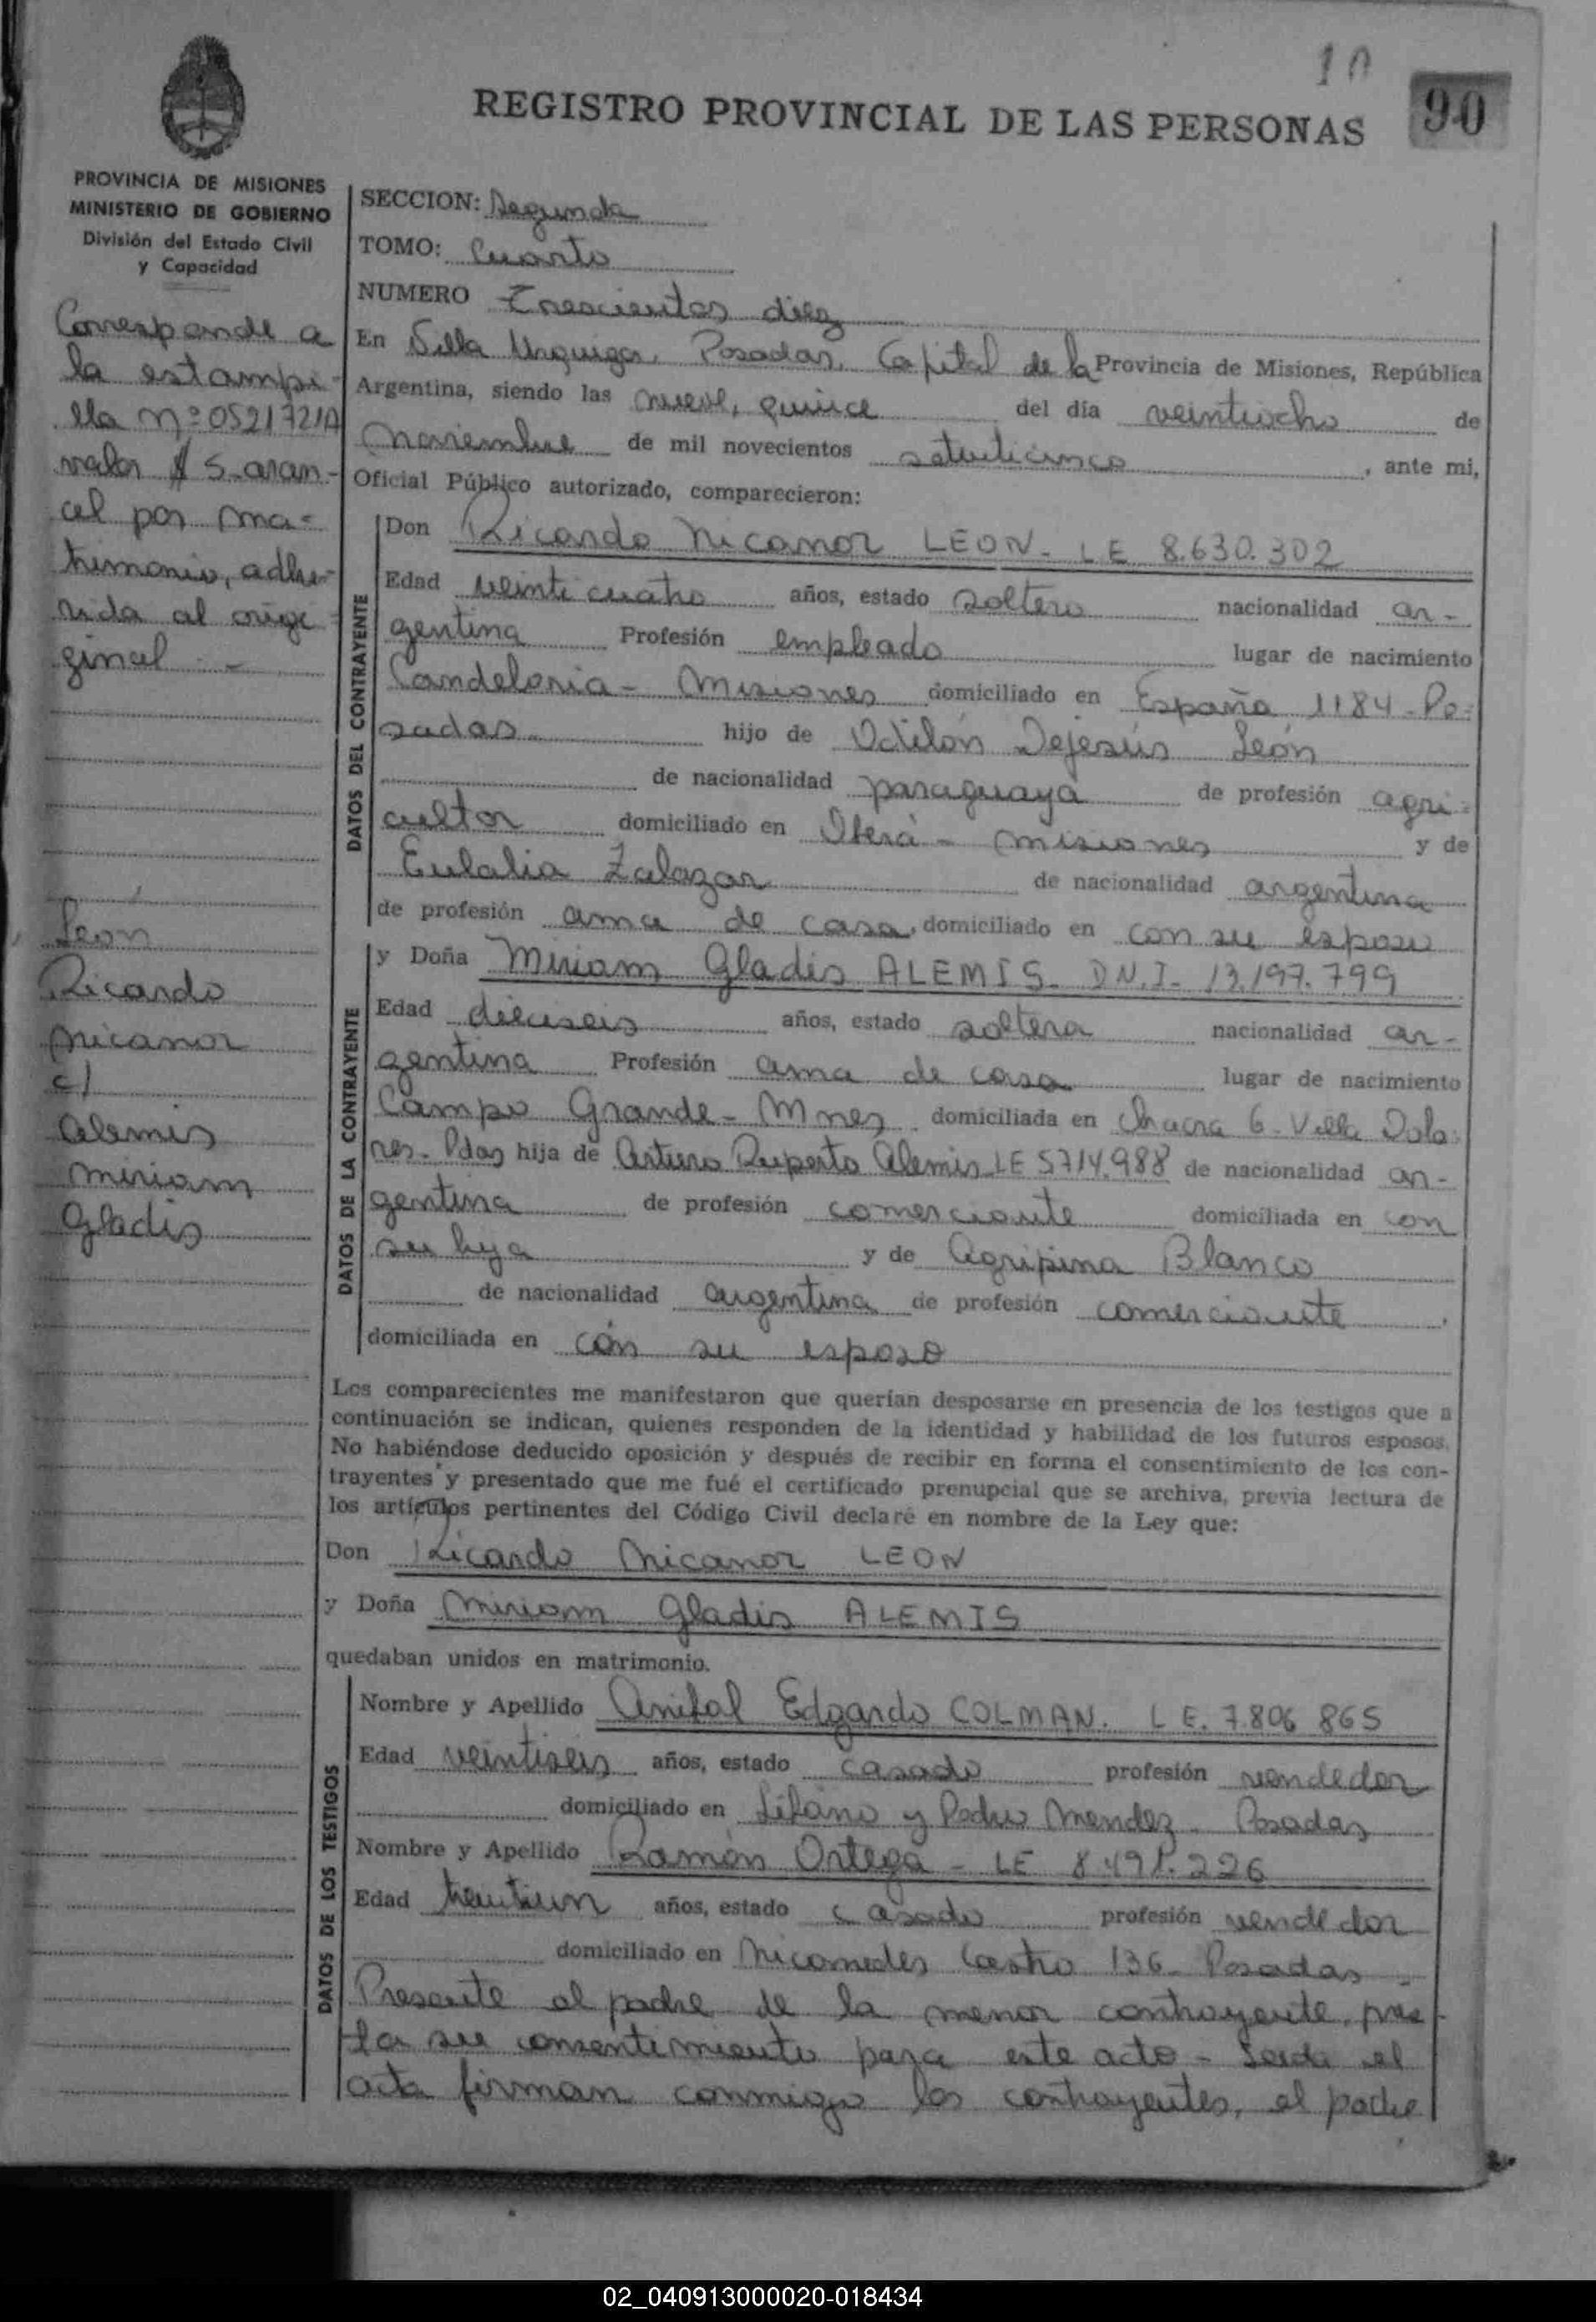 10
90
REGISTRO PROVINCIAL DE LAS PERSONAS
PROVINCIA DE MISIONES
MINISTERIO DE GOBIERNO
División del Estado Civil
y Capacidad
Corresponde a
la estampi-
lla nº 0521721A
valor $ 5.-aran-
cel por ma-
trimonio, adhe-
rida al origi
ginal. -
León
Ricardo
Nicanor
c/
Alemis
Miriam
Gladis
SECCION: Segunda
TOMO: Cuarto
NUMERO Trescientos diez
En Villa Urquiza, Posadas, Capital de la Provincia de Misiones, República
Argentina, siendo las nueve, quince del día veintiocho de
noviembre de mil novecientos setenticinco, ante mi,
Oficial Público autorizado, comparecieron:
DATOS DEL CONTRAYENTE
Don Ricardo Nicanor LEON - LE 8.630.302
Edad veinticuatro años, estado soltero nacionalidad ar-
gentina Profesión empleado lugar de nacimiento
Candelaria - Misiones domiciliado en España 1184 - Po-
sadas. hijo de Odilón Dejesús León
de nacionalidad paraguaya de profesión agri-
cultor domiciliado en Oberá - Misiones y de
Eulalia Zalazar de nacionalidad argentina
de profesión ama de casa, domiciliado en con su esposo
DATOS DE LA CONTRAYENTE
y Doña Miriam Gladis ALEMIS - D.N.I. 13.197.799
Edad dieciseis años, estado soltera nacionalidad ar-
gentina Profesión ama de casa lugar de nacimiento
Campo Grande - Mnes domiciliada en Chacra 6 - Villa Dolo-
res - Pdas hija de Arturo Ruperto Alemis LE 5714.988 de nacionalidad ar-
gentina de profesión comerciante domiciliada en con
su hija y de Agripina Blanco
de nacionalidad argentina de profesión comerciante,
domiciliada en con su esposo
Los comparecientes me manifestaron que querían desposarse en presencia de los testigos que a
continuación se indican, quienes responden de la identidad y habilidad de los futuros esposos.
No habiéndose deducido oposición y después de recibir en forma el consentimiento de los con-
trayentes y presentado que me fué el certificado prenupcial que se archiva, previa lectura de
los artículos pertinentes del Código Civil declaré en nombre de la Ley que:
Don Ricardo Nicanor LEON
y Doña Miriam Gladis ALEMIS
quedaban unidos en matrimonio.
DATOS DE LOS TESTIGOS
Nombre y Apellido Anibal Edgardo COLMAN. LE. 7.806 865
Edad veintiseis años, estado casado profesión vendedor
domiciliado en Líbano y Pedro Mendez - Posadas
Nombre y Apellido Ramón Ortega - LE 8.491.226
Edad treintiun años, estado casado profesión vendedor
domiciliado en Nicomedes Castro 136 - Posadas -
Presente el padre de la menor contrayente, pres
ta su consentimiento para este acto - Leida el
acta firman conmigo los contrayentes, el padre
02_040913000020-018434